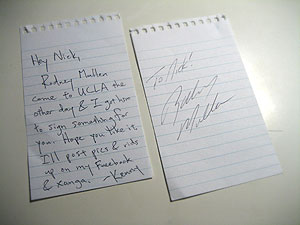 Hey Nick,
Rodney Mullen
came to UCLA the
other day & I got him
to sign something for
you. Hope you like it.
I'll post pics & vids
up on my Facebook
& Xanga. -Kenny
To Nick!
Rodney
Mullen